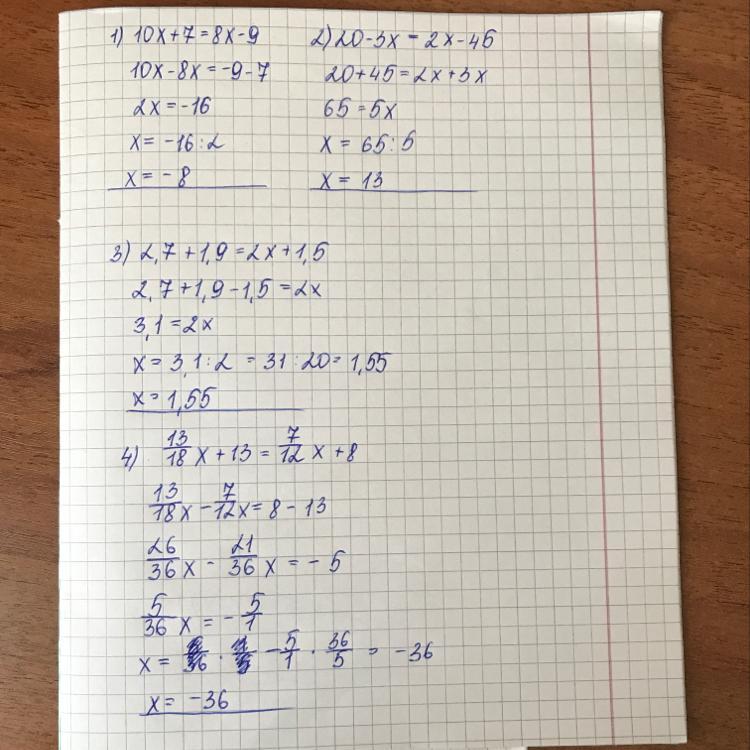 1) 10x+7=8x-9
10x-8x=-9-7
2x=-16
x=-16:2
x=-8
2) 20-3x=2x-45
20+45=2x+3x
65=5x
x=65:5
x=13
3) 2,7+1,9=2x+1,5
2,7+1,9-1,5=2x
3,1=2x
x=3,1:2=31:20=1,55
x=1,55
4) 13/18 x+13=7/12 x+8
13/18 x-7/12 x=8-13
26/36 x-21/36 x=-5
5/36 x=-5/1
x= -5/1 · 36/5 = -36
x=-36